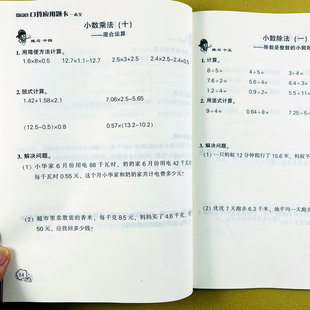 口算应用题卡一本全
小数乘法（十）
——混合运算
练习十四
1. 用简便方法计算。
1.6×8×0.5 12.7×1.1−12.7 2.5×3+2.5 2.4×2.5−2.4×0.5
2. 脱式计算。
1.42+1.58×2.1 7.06×2.5−5.65
(12.5−0.5)×0.8 0.57×(13.2−10.2)
3. 解决问题。
(1) 小华家 6 月份用电 68 千瓦时，妈妈家 6 月份用电 42 千瓦
每千瓦时 0.55 元，这个月小华家和奶奶家共计电费多少元？
(2) 超市里卖散装的香米，每千克 8.5 元，妈妈买了 4.6 千克，
50 元，应找回多少钱？
小数除法（一）
——除数是整数的小数除
练习十五
1. 计算。
8÷5= 2÷4=
4÷5= 3÷6=
6÷4= 7÷2=
2. 用竖式计算。
9÷4= 0.64÷8= 7.25÷5
3. 解决问题。
(1) 一只蚂蚁 12 分钟爬行了 15.6 米，蚂蚁
(2) 优优 7 天跑步 6.3 千米，她平均一天跑